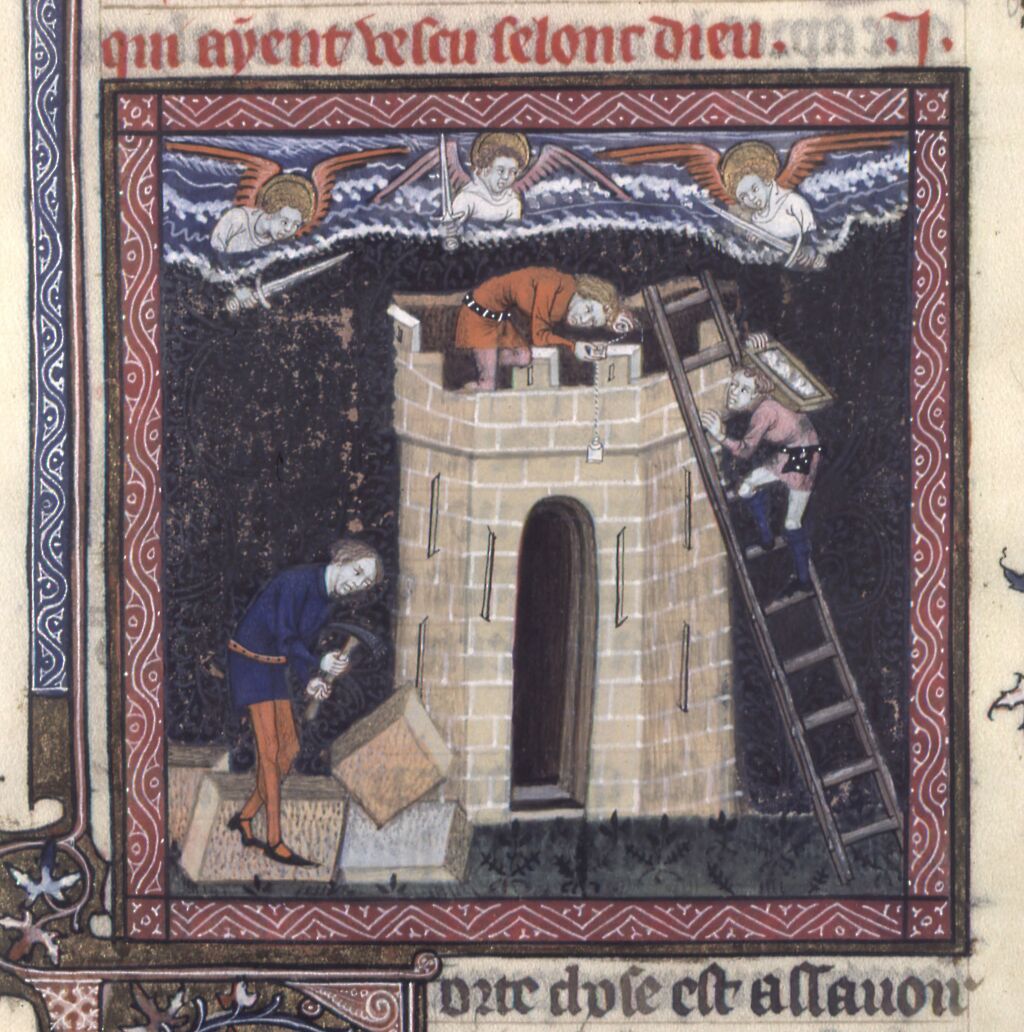 qui ayent vescu selonc dieu. .J.
orte chose est assavoir